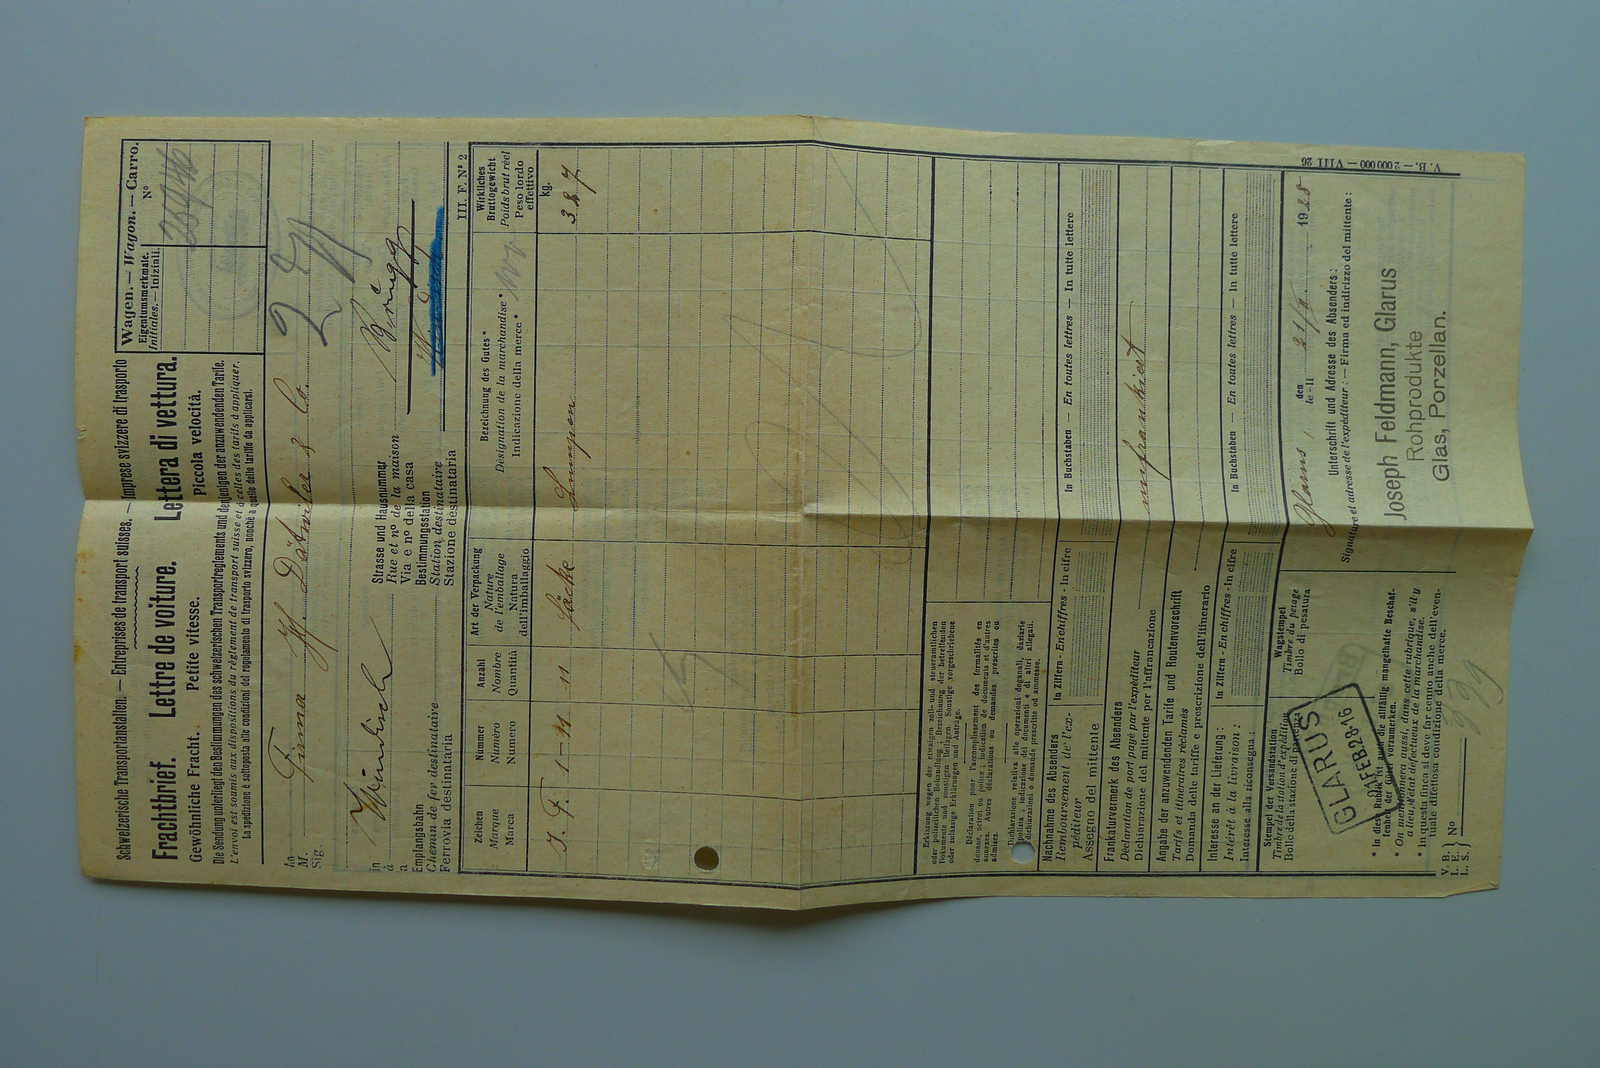 Schweizerische Transportanstalten. — Entreprises de transport suisses. — Imprese svizzere di trasporto
Frachtbrief. Lettre de voiture. Lettera di vettura.
Gewöhnliche Fracht. Petite vitesse. Piccola velocità.
Die Sendung unterliegt den Bestimmungen des schweizerischen Transportreglements und denjenigen der anzuwendenden Tarife.
L'envoi est soumis aux dispositions du règlement de transport suisse et à celles des tarifs à appliquer.
La spedizione è sottoposta alle condizioni del regolamento di trasporto svizzero, nonchè a quelle delle tariffe da applicarsi.
Wagen. — Wagon. — Carro.
Eigentumsmerkmale.
Initiales. — Iniziali.
Nº
M.
Sig.
Firma H. Dätwiler & Co.
in
à
a
Windisch
Strasse und Hausnummer
Rue et nº de la maison
Via e nº della casa
Empfangsbahn
Chemin de fer destinataire
Ferrovia destinataria
Bestimmungsstation
Station destinataire
Stazione destinataria
Brugg
III. F. Nº 2
Zeichen
Marque
Marca
Nummer
Numéro
Numero
Anzahl
Nombre
Quantità
Art der Verpackung
Nature de l'emballage
Natura dell'imballaggio
Bezeichnung des Gutes *
Désignation de la marchandise *
Indicazione della merce *
Wirkliches Bruttogewicht
Poids brut réel
Peso lordo effettivo
kg.
J. F. 1–11 11 Säcke Lumpen 387
Nachnahme des Absenders
Remboursement de l'expéditeur
Assegno del mittente
In Ziffern - En chiffres - In cifre
In Buchstaben — En toutes lettres — In tutte lettere
Frankaturvermerk des Absenders
Déclaration de port payé par l'expéditeur
Dichiarazione del mittente per l'affrancazione
unfrankiert
Angabe der anzuwendenden Tarife und Routenvorschrift
Tarifs et itinéraires réclamés
Domanda delle tariffe e proscrizione dell'itinerario
Interesse an der Lieferung :
Intérêt à la livraison :
Interesse alla riconsegna :
In Ziffern - En chiffres - In cifre
In Buchstaben — En toutes lettres — In tutte lettere
Stempel der Versandstation
Timbre de la station d'expédition
Bollo della stazione di partenza
Wagstempel
Timbre du pesage
Bollo di pesatura
GLARUS
FEB 28-16
Glarus, den 21/2 1928
le - il
Unterschrift und Adresse des Absenders :
Signature et adresse de l'expéditeur : — Firma ed indirizzo del mittente :
Joseph Feldmann, Glarus
Rohprodukte
Glas, Porzellan.
* In diese Rubrik ist auch die allfällig mangelhafte Beschaffenheit der Güter vorzumerken.
* On mentionnera aussi, dans cette rubrique, s'il y a lieu, l'état défectueux de la marchandise.
* In questa finca si deve far cenno anche dell'eventuale difettosa condizione della merce.
V. B.
L. E.
L. S.
Nº
V. B. — 2 000 000 — VIII 26